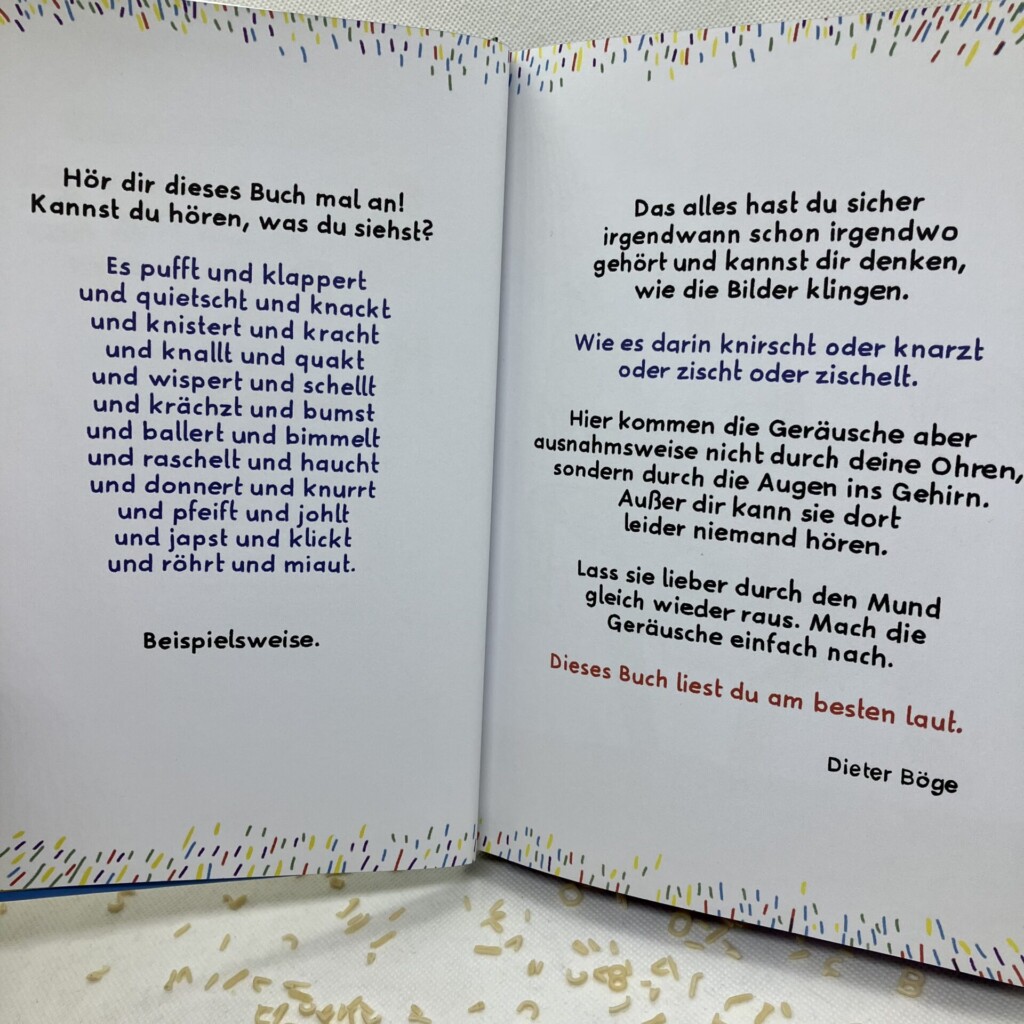 Hör dir dieses Buch mal an!
Kannst du hören, was du siehst?
Es pufft und klappert
und quietscht und knackt
und knistert und kracht
und knallt und quakt
und wispert und schellt
und krächzt und bumst
und ballert und bimmelt
und raschelt und haucht
und donnert und knurrt
und pfeift und johlt
und japst und klickt
und röhrt und miaut.
Beispielsweise.
Das alles hast du sicher
irgendwann schon irgendwo
gehört und kannst dir denken,
wie die Bilder klingen.
Wie es darin knirscht oder knarzt
oder zischt oder zischelt.
Hier kommen die Geräusche aber
ausnahmsweise nicht durch deine Ohren,
sondern durch die Augen ins Gehirn.
Außer dir kann sie dort
leider niemand hören.
Lass sie lieber durch den Mund
gleich wieder raus. Mach die
Geräusche einfach nach.
Dieses Buch liest du am besten laut.
Dieter Böge